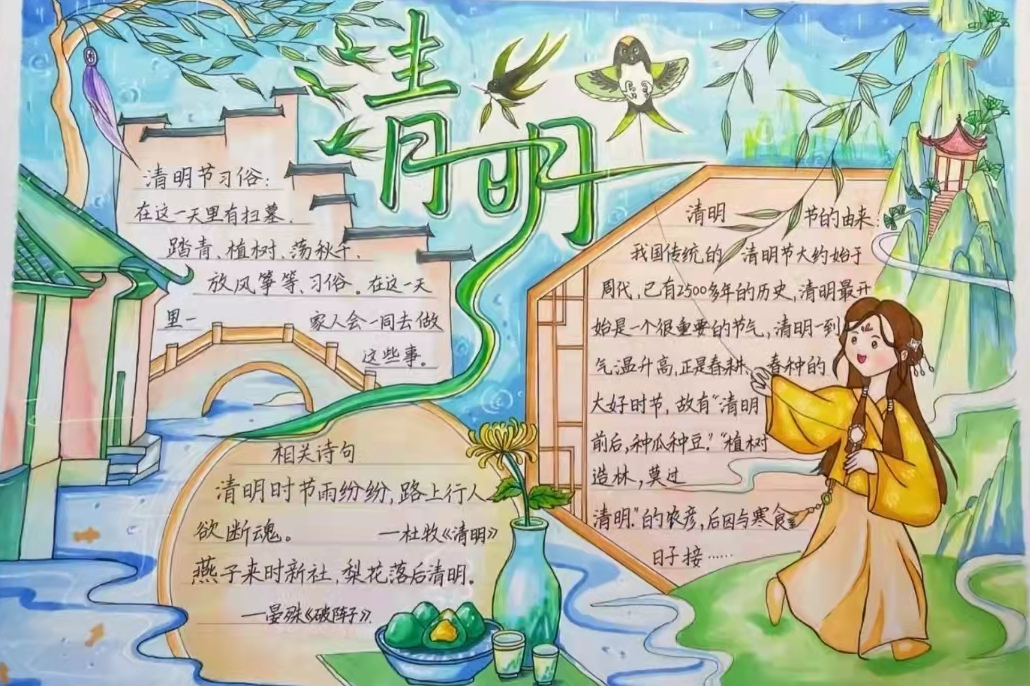 清明
清明节习俗:
在这一天里有扫墓、
踏青、植树、荡秋千、
放风筝等、习俗。在这一天
里一 家人会一同去做
这些事。
清明 节的由来:
我国传统的 清明节大约始于
周代,已有2500多年的历史,清明最开
始是一个很重要的节气,清明一到
气温升高,正是春耕、春种的
大好时节,故有“清明
前后,种瓜种豆。”“植树
造林,莫过
清明。”的农彦,后因与寒食
日子接……
相关诗句
清明时节雨纷纷,路上行人
欲断魂。 —杜牧《清明》
燕子来时新社,梨花落后清明。
—晏殊《破阵子》